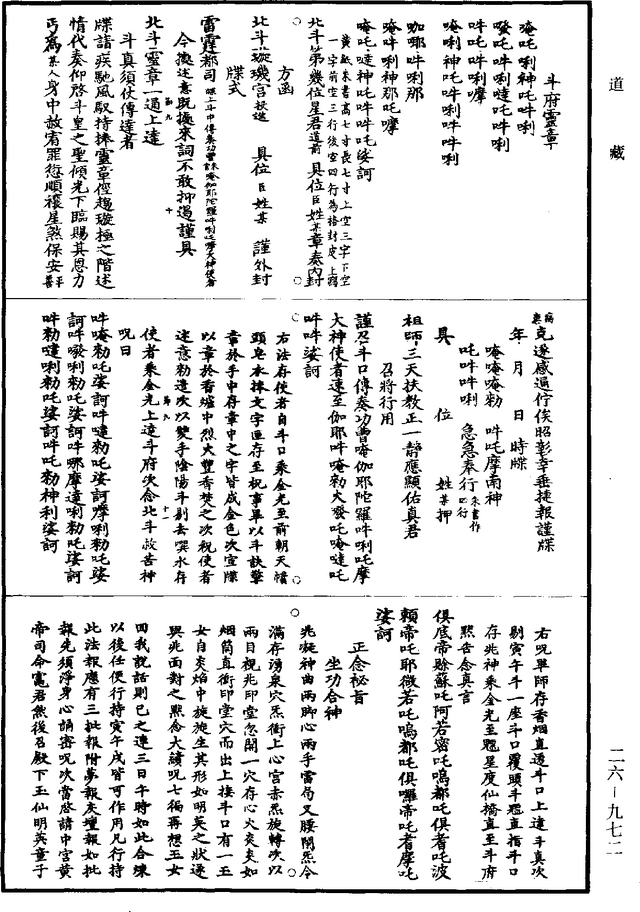 道藏
斗府靈章
唵吒唎神吒吽唎
發吒吽唎噠吒吽唎
吽吒吽唎摩
唵唎神吒吽吽吽唎
咖耶吽唎那
唵吽唎神那吒摩
唵吒噠神吒吽吽吒娑訶
黃紙朱書高七寸長七寸上空三字下空
一字前空三行後空四行為格封皮上寫
北斗第幾位星君道前具位臣姓某章奏內封
方函
北斗璇璣宮投進 具位臣姓某 謹外封
牒式
雷霆都司
今據述意既據來詞不敢抑遏謹具
北斗靈章一通上達
斗真須仗傳達者
牒請疾馳風馭持捧靈章徑趨璇極之階述
情代奏仰啓斗皇之聖傾光下臨賜其恩力
丐為某人身中赦宥罪愆順禳星煞保安
克遂感通佇俟昭彰幸垂捷報謹牒
年 月 日 時牒
唵唵唵勑 吽吒摩南神
吒吽吽唎 急急奉行
具 位 姓某押
祖師三天扶教正一靜應顯佑真君
召將行用
謹召斗口傳奏功曹唵伽耶陀羅吽唎吒摩
大神使者速至伽耶吽唵勑火發吒唵噠吒
吽吽娑訶
右法存使者自斗口乘金光至前朝天幞
頭皂衣捧文字匣存至祝事畢以斗訣擎
章於手中存章中之字皆成金色次宣牒
以章於香爐中烈火豐香焚之次祝使者
速意勑遣次以雙手陰陽斗剔去噀水存
使者乘金光上達斗府次念北斗救苦神
呪曰
吽唵勑吒娑訶吽噠勑吒娑訶摩唎勑吒娑
訶吽發唎勑吒娑訶吽哪摩達唎勑吒娑訶
吽勑噠唎勑吒娑訶吽吒勑神利娑訶
右呪畢師存香烟直透斗口上達斗真次
剔寅午斗一座斗口覆頭斗魁直指斗口
存兆神乘金光至魁星度仙橋直至斗府
默告念真言
俱底帝賒蘇吒阿若密吒嗚都吒俱耆吒波
賴帝吒耶微若吒嗚都吒俱囉帝吒耆摩吒
娑訶
正念祕旨
坐功合神
兆凝神曲兩脚心兩手雷局叉腰閉炁令
滿存湧泉穴炁衝上心宮赤炁旋轉次以
兩目視兆印堂忽開一穴存心火炎炎如
烟筒直衝印堂穴而出上接斗口有一玉
女自炎焰中旋旋生其形如明英之狀逐
與兆面對之默念大讀呪七徧再想玉女
四我說話則已之連三日午時如此合煉
以後任便行持寅午戌皆可作用凡行持
此法報應有三批報附夢報灰壇報如批
報先須淨身心誦密呪次當啓請中宮黃
帝司命竈君然後召殿下玉仙明英童子
二六—九七二